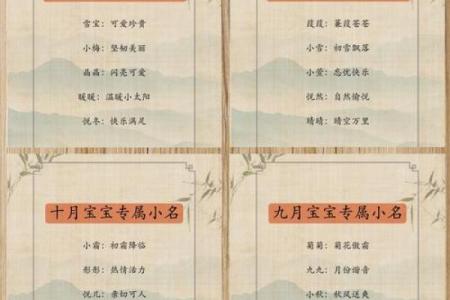 雪宝：可爱珍贵
小梅：坚韧美丽
晶晶：闪亮可爱
暖暖：温暖小太阳
悦冬：快乐满足
葭葭：蒹葭苍苍
小雪：初雪飘落
小萱：忘忧快乐
悠然：自然愉悦
晴晴：晴空万里
十月宝宝专属小名
小霜：初霜降临
彤彤：热情活力
悦儿：亲切可人
九月宝宝专属小名
菊菊：菊花傲霜
九九：月份谐音
小秋：秋风送爽